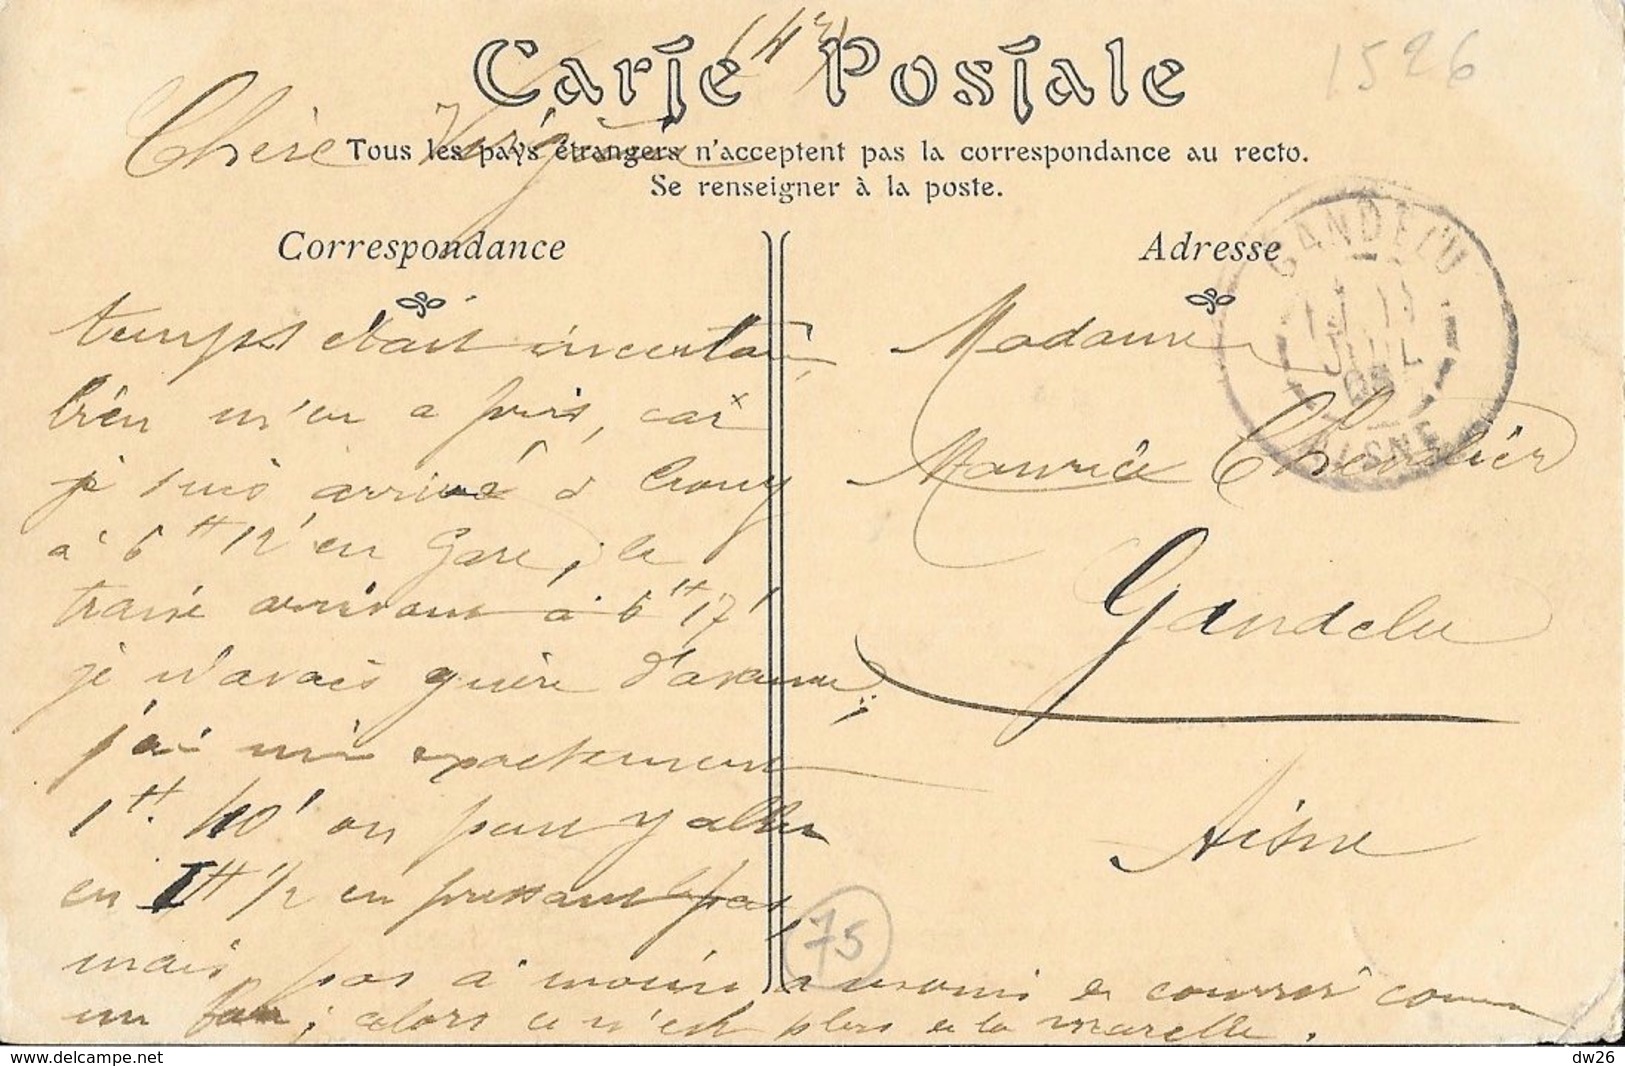 (43)
1526
Carte Postale
Chère Virginie
Tous les pays étrangers n'acceptent pas la correspondance au recto.
Se renseigner à la poste.
Correspondance
Adresse
GANDELU
JUIL
AISNE
temps était incertain
bien m'en a pris, car
je suis arrivé à Crouy
à 6 H 12' en gare, le
train arrivant à 6 H 17'
je n'avais guère d'avance,
j'ai mis exactement
1 H. 40' on peut y aller
en 1 H 1/2 en pressant le pas,
mais pas à moins de courrir comme
un ; alors ce n'est plus de la marche.
Madame
Maurice Chevalier
Gandelu
Aisne
75
dw26